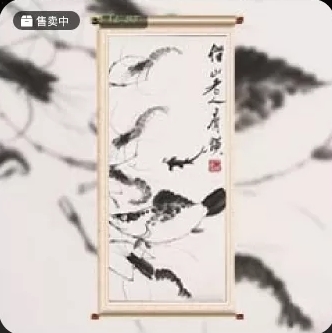 售卖中
借山老人齐璜